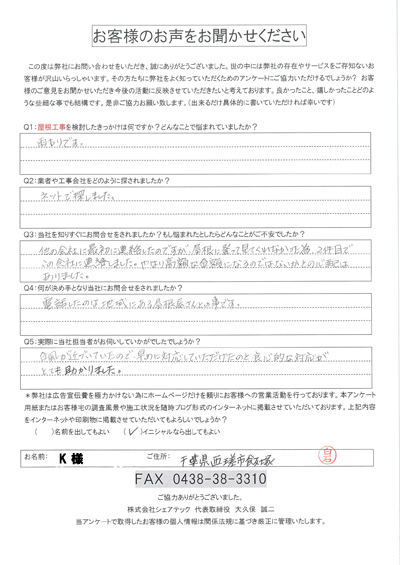 お客様のお声をお聞かせください
この度は弊社にお問い合わせをいただき、誠にありがとうございました。世の中には弊社の存在やサービスをご存知ないお
客様が沢山いらっしゃいます。その方たちに弊社をよく知っていただくためのアンケートにご協力いただけるでしょうか？ お客
様のご意見をお聞かせいただき今後の活動に反映させていただきたいと考えております。良かったこと、嬉しかったことどのよ
うな些細な事でも結構です。是非ご協力お願い致します。（出来るだけ具体的に書いていただければ幸いです）
Q1：屋根工事を検討したきっかけは何ですか？どんなことで悩まれていましたか？
雨もりです。
Q2：業者や工事会社をどのように探されましたか？
ネットで探しました。
Q3：当社を知りすぐにお問合せをされましたか？もし悩まれたとしたらどんなことがご不安でしたか？
他の会社に最初に連絡したのですが、屋根に登って見てくれなかった為、2件目で
この会社に連絡しました。やはり高額な金額になるのではないかとの心配は
ありました。
Q4：何が決め手となり当社にお問合せをされましたか？
電話したのは地域にある屋根屋さんとの事です。
Q5：実際に当社担当者がお伺いしていかがでしたでしょうか？
台風が近づいていたので、早めに対応していただけたのと良心的な対応が
とても助かりました。
＊弊社は広告宣伝費を極力かけない為にホームページだけを頼りにお客様への営業活動を行っております。本アンケート
用紙またはお客様宅の調査風景や施工状況を随時ブログ形式のインターネットに掲載させていただいております。上記内容
をインターネットや印刷物に掲載させていただいてもよろしいでしょうか？
（　）名前を出してもよい　（✓）イニシャルなら出してもよい
お名前： K 様　ご住所： 千葉県匝瑳市飯塚
FAX 0438-38-3310
ご協力ありがとうございました。
株式会社シェアテック 代表取締役 大久保 誠二
当アンケートで取得したお客様の個人情報は関係法規に基づき厳正に管理いたします。